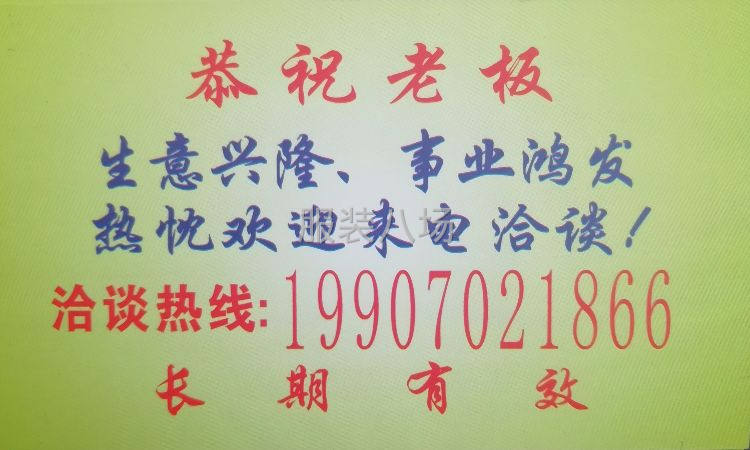 恭祝老板
生意兴隆、事业鸿发
热忱欢迎来电洽谈!
服装八场
洽谈热线:19907021866
长期有效